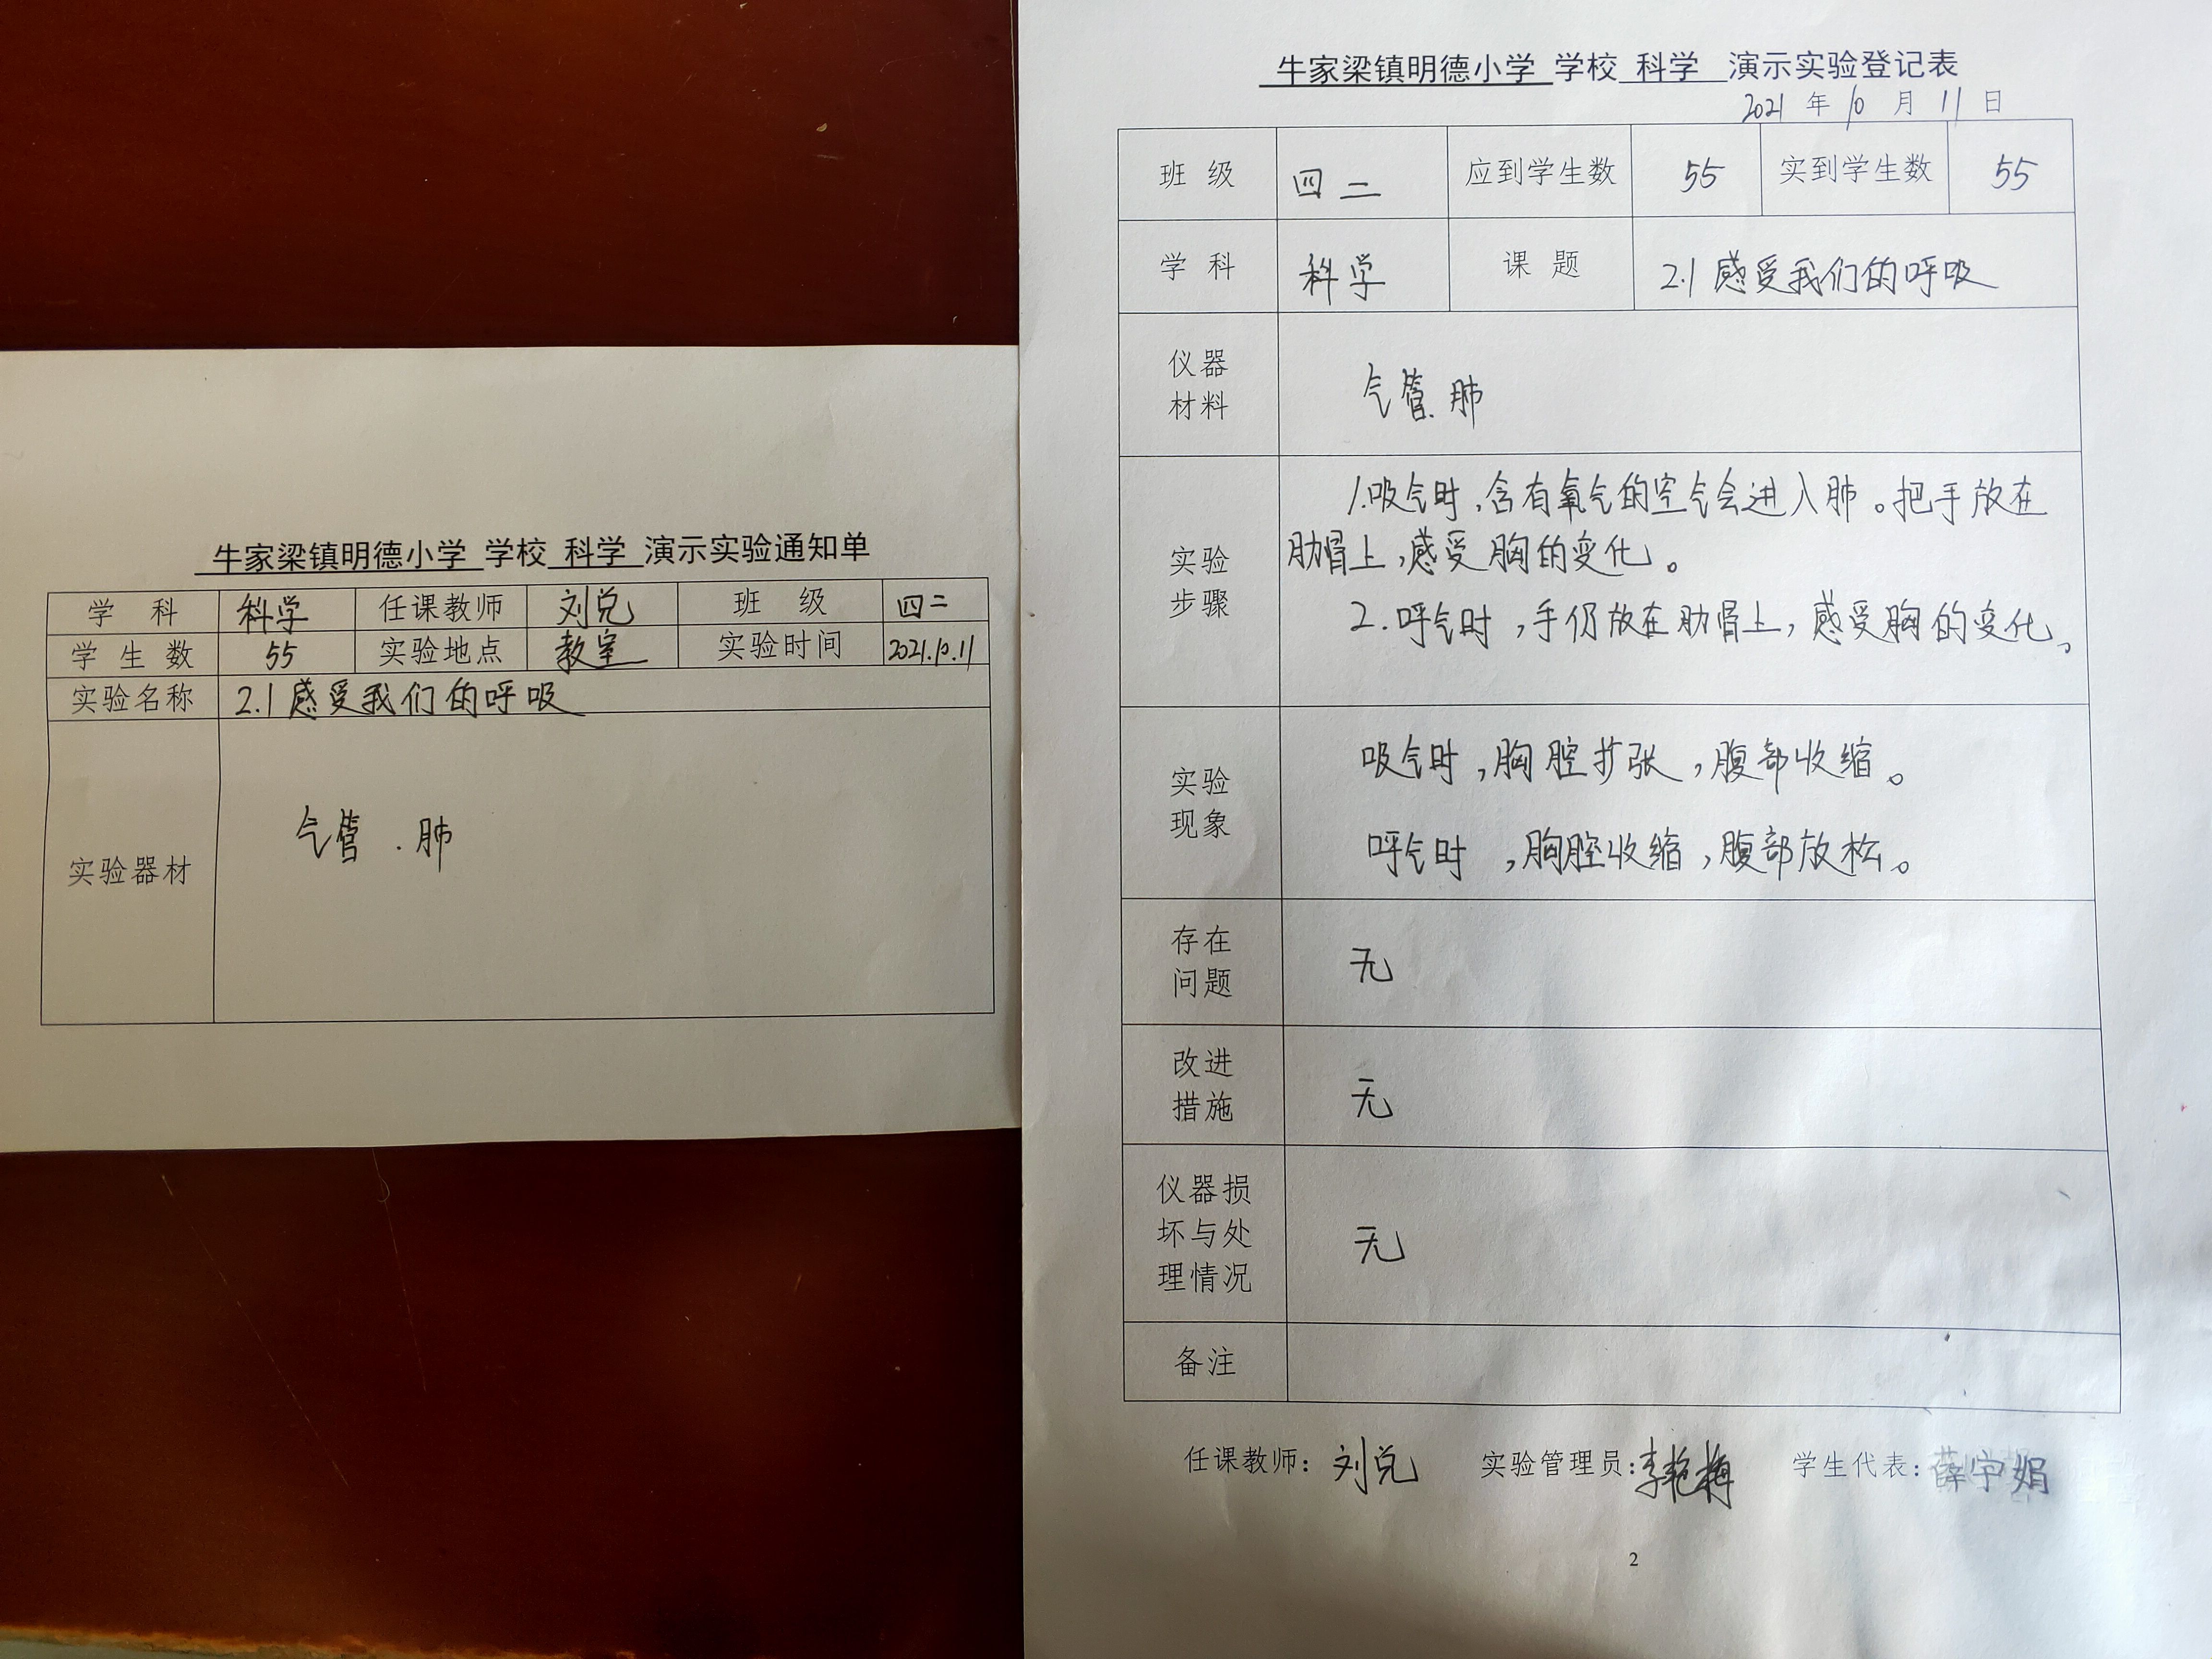 牛家梁镇明德小学 学校 科学 演示实验通知单
学 科 科学 任课教师 刘兑 班 级 四二
学 生 数 55 实验地点 教室 实验时间 2021.10.11
实验名称 2.1感受我们的呼吸
实验器材 气管.肺
牛家梁镇明德小学 学校 科学 演示实验登记表
2021 年 10 月 11 日
班 级 四二 应到学生数 55 实到学生数 55
学 科 科学 课 题 2.1感受我们的呼吸
仪器
材料
气管.肺
实验
步骤
1.吸气时,含有氧气的空气会进入肺。把手放在
肋骨上,感受胸的变化。
2.呼气时,手仍放在肋骨上,感受胸的变化。
实验
现象
吸气时,胸腔扩张,腹部收缩。
呼气时,胸腔收缩,腹部放松。
存在
问题
无
改进
措施
无
仪器损
坏与处
理情况
无
备注
任课教师: 刘兑 实验管理员:李艳梅 学生代表:薛宇娟
2